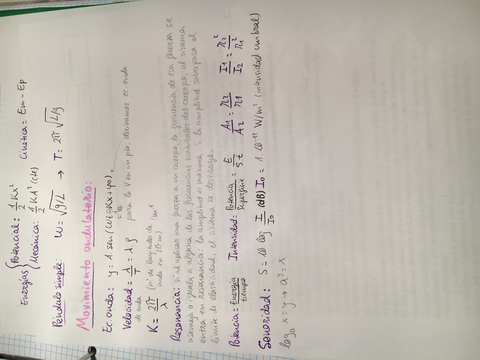 Energías { Potencial: 1/2 Kx²
Mecánica: 1/2 KA² (cte) Cinética = Em - Ep
Péndulo simple: ω = √g/L → T = 2π √L/g
Movimiento ondulatorio:
Ec onda: y = A sen (ωt ± Kx + φ₀)
Velocidad = λ/T = λ f para la V en un pto. derivamos ec onda
de onda
K = 2π/λ (nº de longitudes de onda en 2π m) (m⁻¹
Resonancia: si al aplicar una fuerza a un cuerpo, la frecuencia de esa fuerza se
asemeja o iguala a alguna de las frecuencias naturales del cuerpo, el sistema
entra en resonancia: la amplitud es máxima. Si la amplitud sobrepasa el
límite de elasticidad, el sistema se destruye.
Potencia = Energía/tiempo Intensidad = Potencia/Superficie = E/S·t A₁/A₂ = r₂/r₁ I₁/I₂ = r₂²/r₁²
Sonoridad: S = 10 log I/I₀ (dB) I₀ = 1·10⁻¹² W/m² (intensidad umbral)
logₐ x = y → aʸ = x